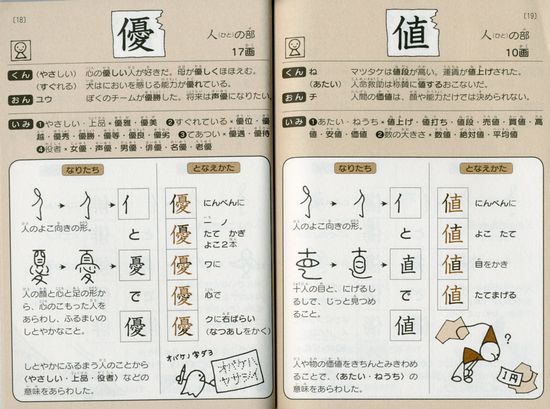 [18]
優
人(ひと)の部
17画
くん
(やさしい) 心の優しい人が好きだ。母が優しくほほえむ。
(すぐれる) 犬はにおいを感じる能力が優れている。
おん
ユウ ぼくのチームが優勝した。将来は声優になりたい。
いみ
❶やさしい・上品・優雅・優美 ❷すぐれている・優位・優
越・優秀・優勝・優等・優良・優劣 ❸てあつい・優遇・優待
❹役者・女優・声優・男優・俳優・名優・老優
なりたち
人のよこ向きの形。
イ
と
憂
人の顔と心と足の形か
ら、心のこもった人を
あらわし、ふるまいの
しとやかなこと。
で
優
しとやかにふるまう人のことから
〈やさしい・上品・役者〉などの
意味をあらわした。
となえかた
優 にんべんに
一 ノ
優 たて かぎ
よこ2本
優 ワに
優 心で
優 クに右ばらい
(なつあしをかく)
オバケノ字ダヨ
オバケハ
ヤサシイ
[19]
値
人(ひと)の部
10画
くん
ね マツタケは値段が高い。運賃が値上げされた。
(あたい) 人命救助は称賛に値するおこないだ。
おん
チ 人間の価値は、顔や能力だけでは決められない。
いみ
❶あたい・ねうち・値上げ・値打ち・値段・売値・買値・高
値・安値・価値 ❷数の大きさ・数値・絶対値・平均値
なりたち
人のよこ向きの形。
イ
と
直
十人の目と、にげるし
るしで、じっと見つめ
ること。
で
値
人や物の価値をきちんとみきわめ
ることで、〈あたい・ねうち〉の
意味をあらわした。
となえかた
値 にんべんに
値 よこ たて
値 目をかき
値 たてまげる
?
1円